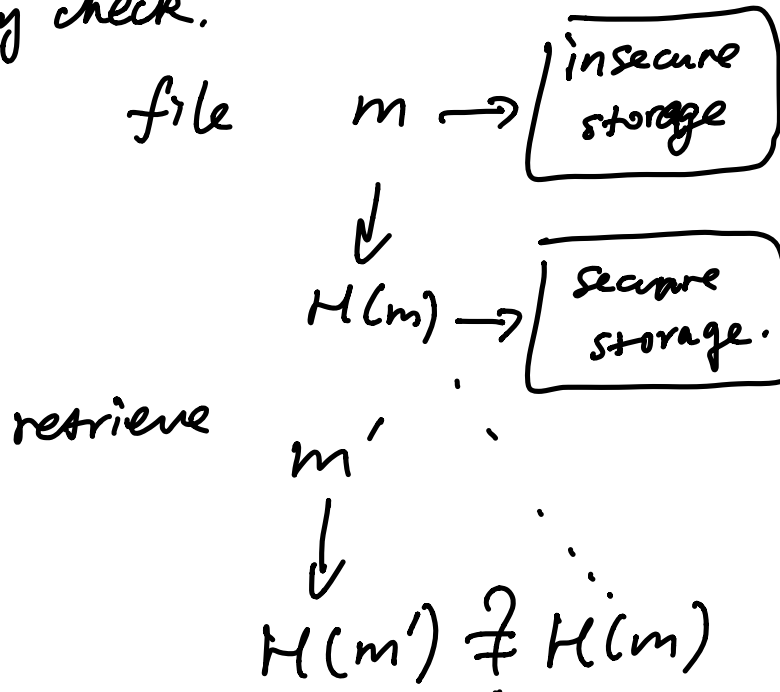 y check.
file m → insecure storage
↓
H(m) → secure storage.
retrieve
m'
↓
H(m') ≟ H(m)